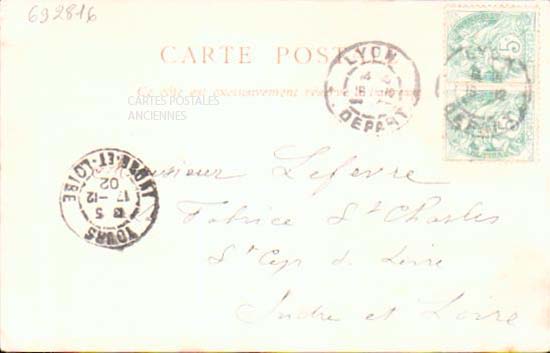 692816
CARTE POSTALE
Ce côté est exclusivement réservé à l'adresse
CARTES POSTALES
ANCIENNES
LYON
DEPART
LYON
DEPART
5
TOURS
INDRE-ET-LOIRE
5
17-12
02
Monsieur Lefevre
Fabrice St Charles
St Cyr d. Loire
Indre et Loire